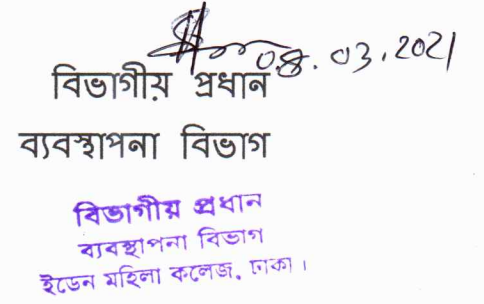 08.03.2021
বিভাগীয় প্রধান
ব্যবস্থাপনা বিভাগ
বিভাগীয় প্রধান
ব্যবস্থাপনা বিভাগ
ইডেন মহিলা কলেজ, ঢাকা।